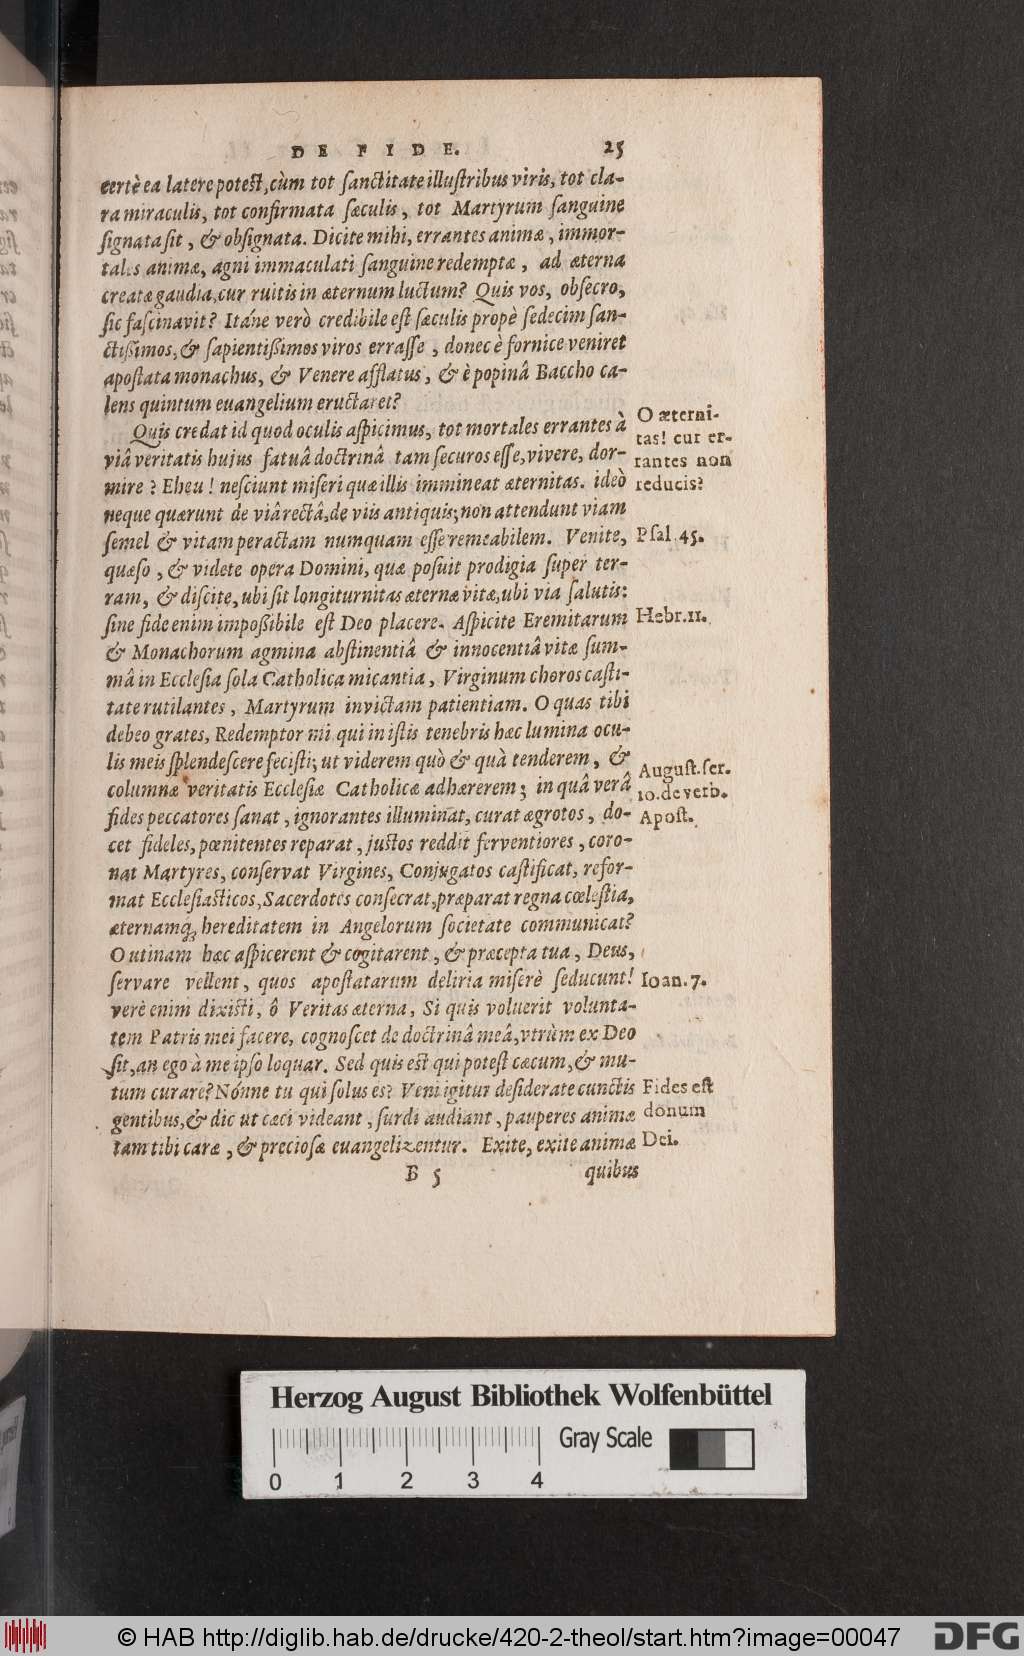 DE FIDE. 25
certè ea latere potest, cùm tot ſanctitate illuſtribus viris, tot cla-
ra miraculis, tot confirmata ſæculis, tot Martyrum ſanguine
ſignata ſit, & obſignata. Dicite mihi, errantes animæ, immor-
tales animæ, agni immaculati ſanguine redemptæ, ad æterna
creatæ gaudia, cur ruitis in æternum luctum? Quis vos, obſecro,
ſic faſcinavit? Itáne verò credibile eſt ſæculis propè ſedecim ſan-
ctißimos, & ſapientißimos viros erraſſe, donec è fornice veniret
apoſtata monachus, & Venere afflatus, & è popinâ Baccho ca-
lens quintum euangelium eructaret?
Quis credat id quod oculis aſpicimus, tot mortales errantes à
viâ veritatis hujus fatuâ doctrinâ tam ſecuros eſſe, vivere, dor-
mire? Eheu! neſciunt miſeri quæ illis immineat æternitas. ideò
neque quærunt de viâ rectâ, de viis antiquis; non attendunt viam
ſemel & vitam peractam numquam eſſe remeabilem. Venite,
quæſo, & videte opera Domini, quæ poſuit prodigia ſuper ter-
ram, & diſcite, ubi ſit longiturnitas æternæ vitæ, ubi via ſalutis:
ſine fide enim impoßibile eſt Deo placere. Aſpicite Eremitarum
& Monachorum agmina abſtinentiâ & innocentiâ vitæ ſum-
mâ in Eccleſia ſola Catholica micantia, Virginum choros caſti-
tate rutilantes, Martyrum invictam patientiam. O quas tibi
debeo grates, Redemptor mi qui in iſtis tenebris hæc lumina ocu-
lis meis ſplendeſcere feciſti; ut viderem quò & quà tenderem, &
columnæ veritatis Eccleſiæ Catholicæ adhærerem; in quâ verâ
fides peccatores ſanat, ignorantes illuminat, curat ægrotos, do-
cet fideles, pœnitentes reparat, juſtos reddit ferventiores, coro-
nat Martyres, conſervat Virgines, Conjugatos caſtificat, refor-
mat Eccleſiaſticos, Sacerdotes conſecrat, præparat regna cœleſtia,
æternamq; hereditatem in Angelorum ſocietate communicat?
O utinam hæc aſpicerent & cogitarent, & præcepta tua, Deus,
ſervare vellent, quos apoſtatarum deliria miſerè ſeducunt!
verè enim dixiſti, ô Veritas æterna, Si quis voluerit volunta-
tem Patris mei facere, cognoſcet de doctrinâ meâ, vtrùm ex Deo
ſit, an ego à me ipſo loquar. Sed quis eſt qui poteſt cæcum, & mu-
tum curare? Nónne tu qui ſolus es? Veni igitur deſiderate cunctis
gentibus, & dic ut cæci videant, ſurdi audiant, pauperes animæ
tam tibi caræ, & precioſæ euangelizentur. Exite, exite animæ
B 5 quibus
O æterni-
tas! cur er-
rantes non
reducis?
Pſal. 45.
Hebr. 11.
Auguſt. ſer.
10. de verb.
Apoſt.
Ioan. 7.
Fides eſt
donum
Dei.
Herzog August Bibliothek Wolfenbüttel
0 1 2 3 4 Gray Scale
© HAB http://diglib.hab.de/drucke/420-2-theol/start.htm?image=00047 DFG